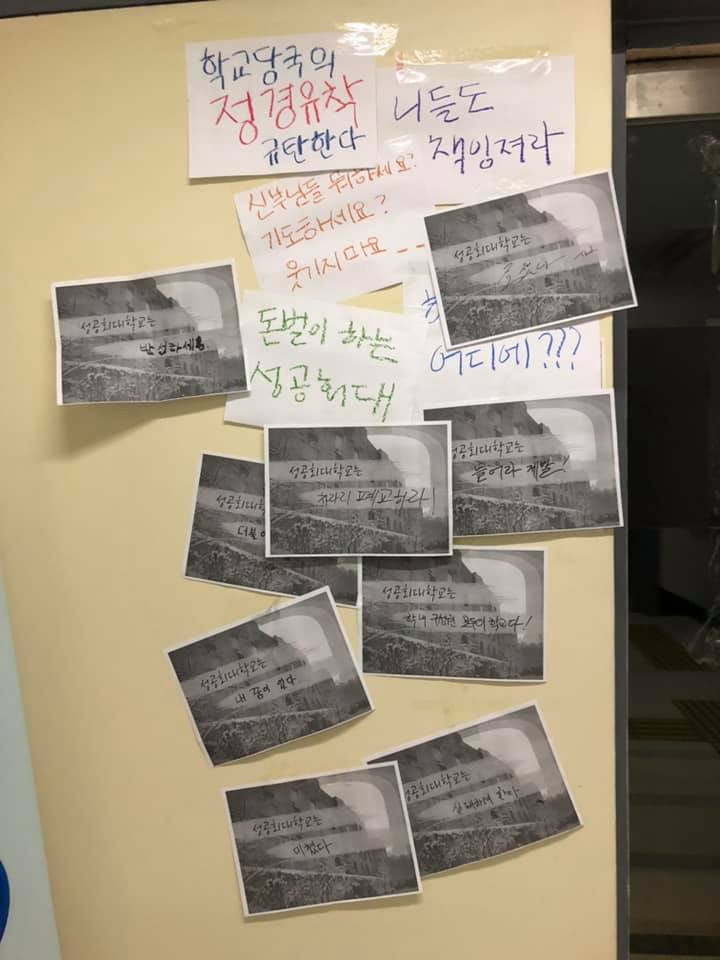 학교당국의
정경유착
규탄한다
니들도
책임져라
신부님들 뭐하세요?
기도하세요?
웃기지마요 --
성공회대학교는
성공회대학교는
반성하세요
돈벌이 하는
성공회대
어디에???
성공회대학교는
들어라 제발!
성공회대학교는
차라리 폐교하라!
성공회대학교는
더불
성공회대학교는
학내 구성원 모두의 학교다!
성공회대학교는
내 꿈이 없다
성공회대학교는
성공회대학교는
미쳤다